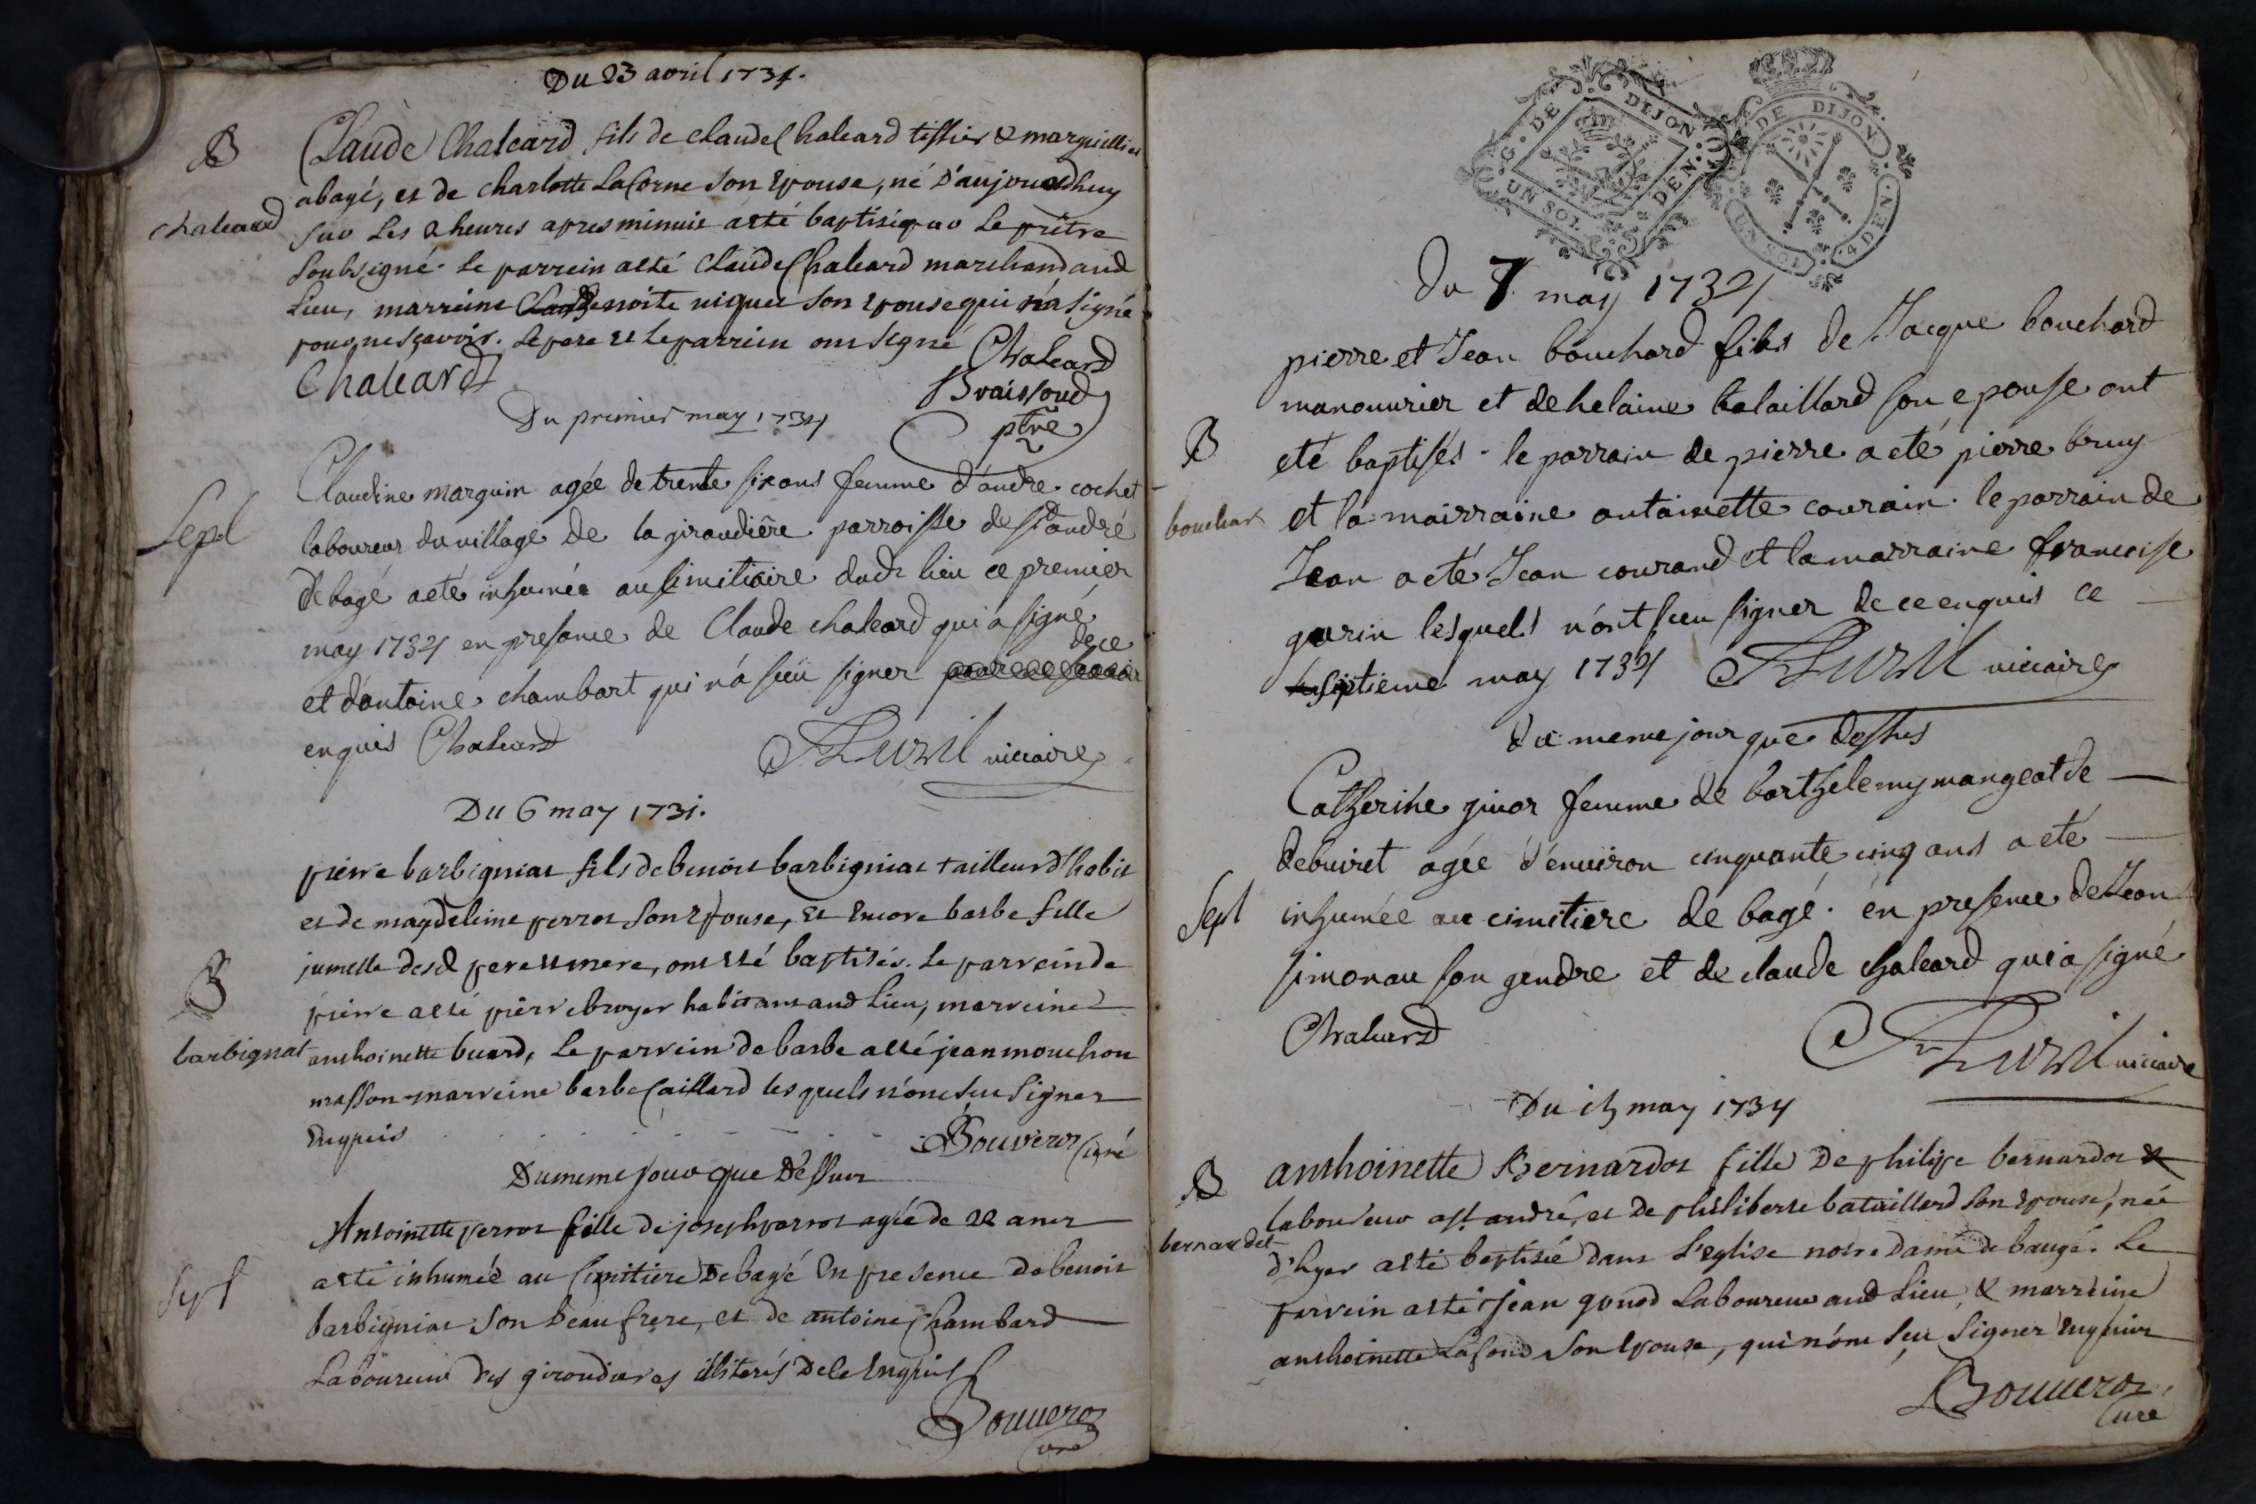 Du 23 avril 1734.
B
Claude Chaleard fils de claude Chaleard tissier & marguillier
abagé, et de charlotte LaCorne son epouse, né d'aujourdhuy
chaleard
sur les 2 heures apres minuit a eté baptisé par le prêtre
soubsigné. le parrein a esté Claude Chaleard marchand aud
lieu, marreine benoite niquet son epouse qui n'a signé
pour ne sçavoir. le pere et le parrein ont signé
Chaleard
Chaleard
Braissoud
ptre
Du premier may 1734
Sepl
Claudine marguin agée de trente six ans femme d'andre cochet
laboureur du village de la giraudière parroisse de st andré
de bagé a eté inhumée au simitiaire dudt lieu ce premier
may 1734 en presance de Claude chaleard qui a signé
et d'antoine chambart qui n'a sceu signer de ce
enquis Chaleard
viccaire
Du 6 may 1734.
pierre barbigniat fils de benoit barbigniat tailleur d'habit
et de magdeleine perrot son epouse, et encore barbe fille
jumelle desd pere et mere, ont eté baptisés. Le parrein de
B
pierre a esté pierre broyer habitant aud lieu, marreine
barbignat
anthoinette buard, Le parrein de barbe a esté jean mouchon
masson marreine barbe Caillard lesquels n'ont sceu signer
Enquis
Bouverot Curé
Du meme jour que dessus
Antoinette perrot fille de joseph perrot agée de 22 ans
a eté inhumée au Cimitiere de bagé En presence de benoit
Sepl
barbigniat son beau frere, et de antoine Chambard
Laboureur des girondieres illiterés de ce Enquis
Bouverot
Curé
G. DE DIJON
UN SOL
DEN.
DE DIJON
UN SOL
4 DEN.
du 7 may 1734
pierre et Jean bouchard fils de Jacque bouchard
manouvrier et de helaine bataillard son epouse ont
B
eté baptisés. le parrain de pierre a eté pierre bruy
bouchar
et la mairraine antainette courain. le parrain de
Jean a eté Jean courand et la marraine francoise
garin lesquels n'ont sceu signer de ce enquis ce
septieme may 1734
viccaire
du meme jour que dessus
Catherine givor femme de barthelemy mangeat de
debuiret agée d'environ cinquante cinq ans a eté
Sepl
inhumée au cimitiere de bagé. en presence de Jean
simonau son gendre et de claude chaleard qui a signé
Chaleard
viccaire
Du 15 may 1734
B
anthoinette Bernardot fille de philipe bernardot
laboureur a st andré, et de philiberte bataillard son epouse, née
bernardet
d'hyer a eté baptisée dans L'eglise notre dame de baugé. Le
parrein a esté jean gonod Laboureur aud Lieu & marreine
anthoinette Lafond son epouse, qui n'ont sceu signer enquis
Bouverot
Curé